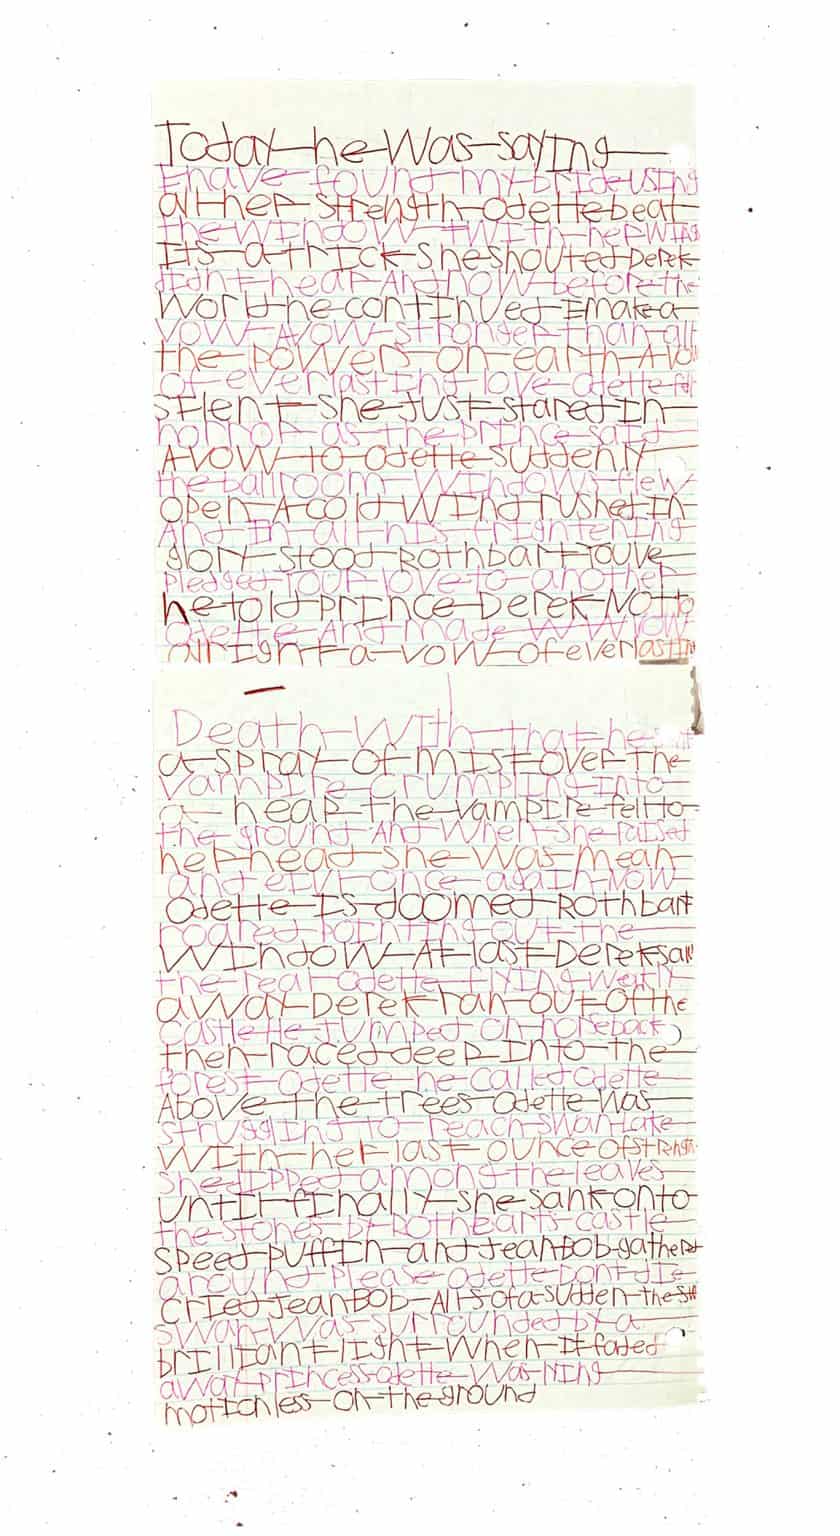 Today he Was saying
I have found my bride USIng
all her strength Odette beat
the WIndow WIth her WIng
Its a trIck She shouted Derek
dIdnt hear And now before the
World he contInued I make a
vow A vow stronger than all
the powers on earth A vow
of everlastIng love Odette fell
sIlent She Just stared In
horror as the prInce saId
A vow to Odette Suddenly
the ballroom WIndows flew
Open A cold WInd rushed In
And In all hIs frIghtenIng
glory stood Rothbart Youve
pledged Your love to another
he told prInce Derek Not to
Odette And made a vow
AlrIght a vow of everlastIn
Death WIth that he
a spray of mIst over the
vampIre crumplIng Into
a heap the vampIre fell to
the ground And When she raIsed
her head she Was mean
and evIl once agaIn Now
Odette Is doomed Rothbart
roared poIntIng out the
WIndow At last Derek saw
the real Odette flyIng weakly
away Derek ran out of the
castle He Jumped on horseback
then raced deep Into the
forest Odette he called Odette
Above the trees Odette Was
strugglIng to reach swan Lake
WIth her last ounce of strength
She dIpped among the leaves
UntIl fInally she sank onto
the stones by Rothbarts castle
Speed PuffIn and Jean Bob gathered
around Please Odette Dont dIe
CrIed Jean Bob All of a Sudden the
Swan Was Surrounded by a
brIllIant lIght When It faded
away prIncess Odette Was lyIng
motIonless On the ground